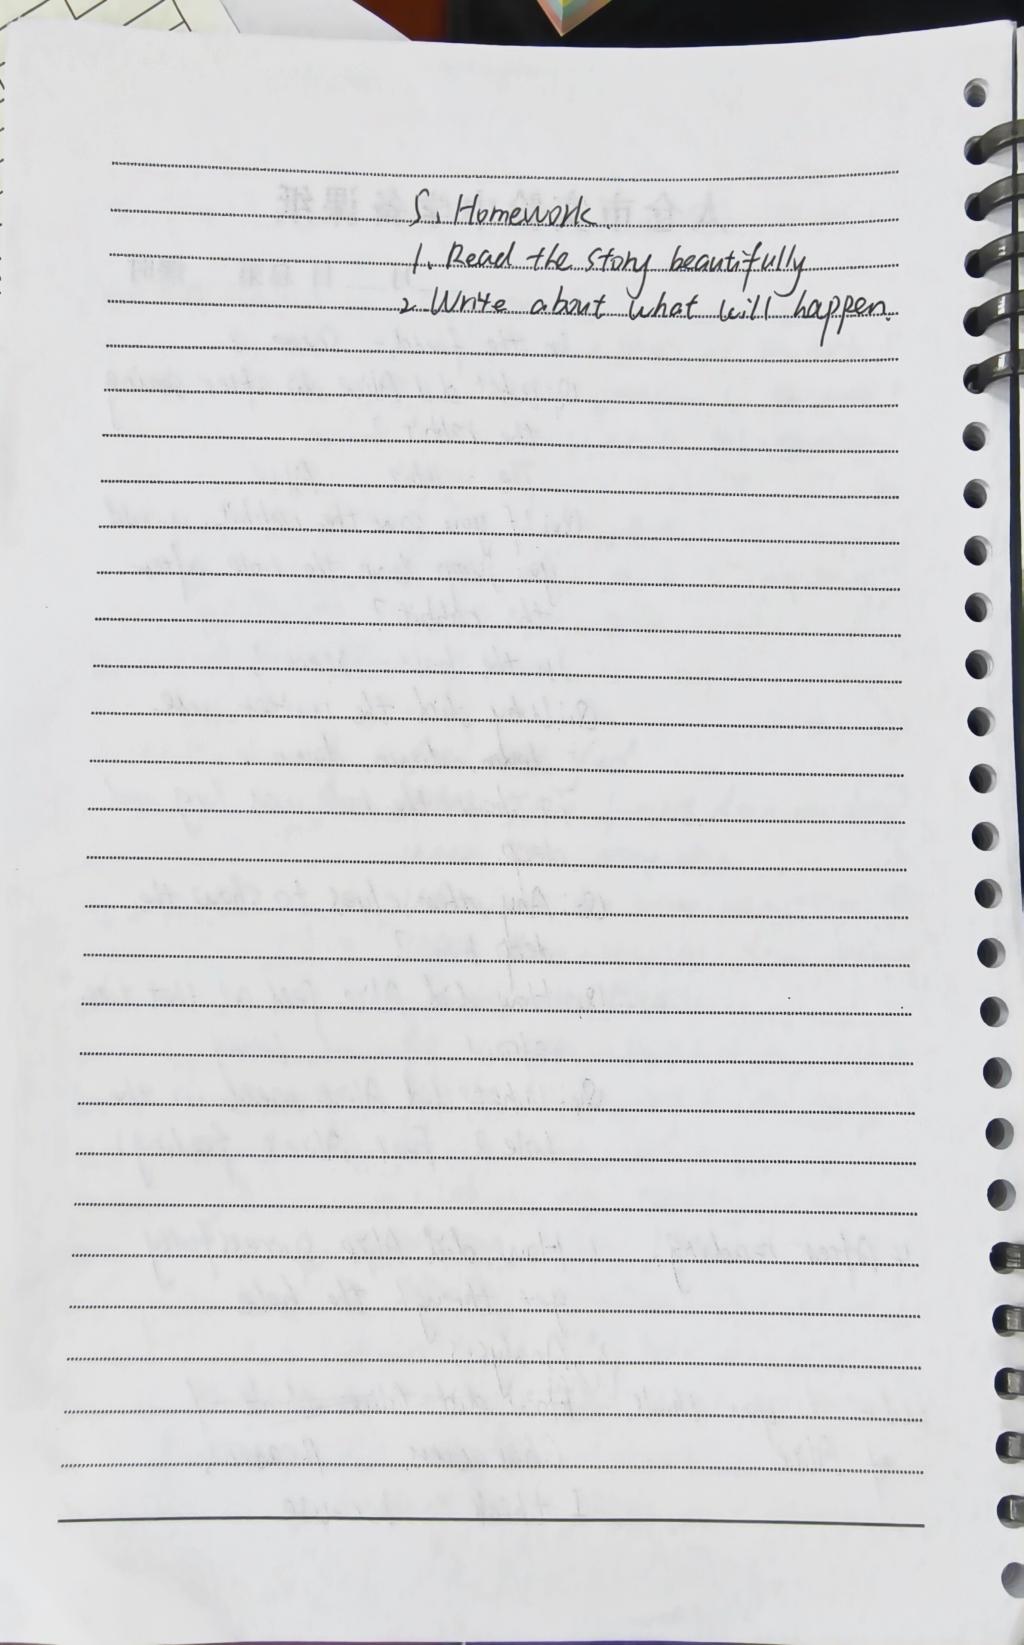 5. Homework.
1. Read the story beautifully
2. Write about what will happen.